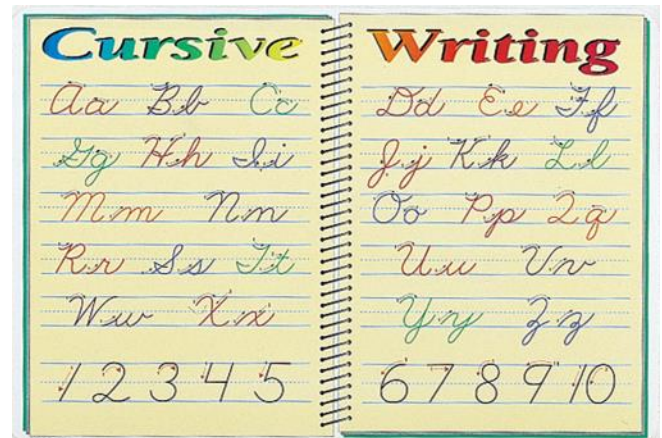 Cursive
Aa Bb Cc
Gg Hh Ii
Mm Nn
Rr Ss Tt
Ww Xx
1 2 3 4 5
Writing
Dd Ee Ff
Jj Kk Ll
Oo Pp Qq
Uu Vv
Yy Zz
6 7 8 9 10